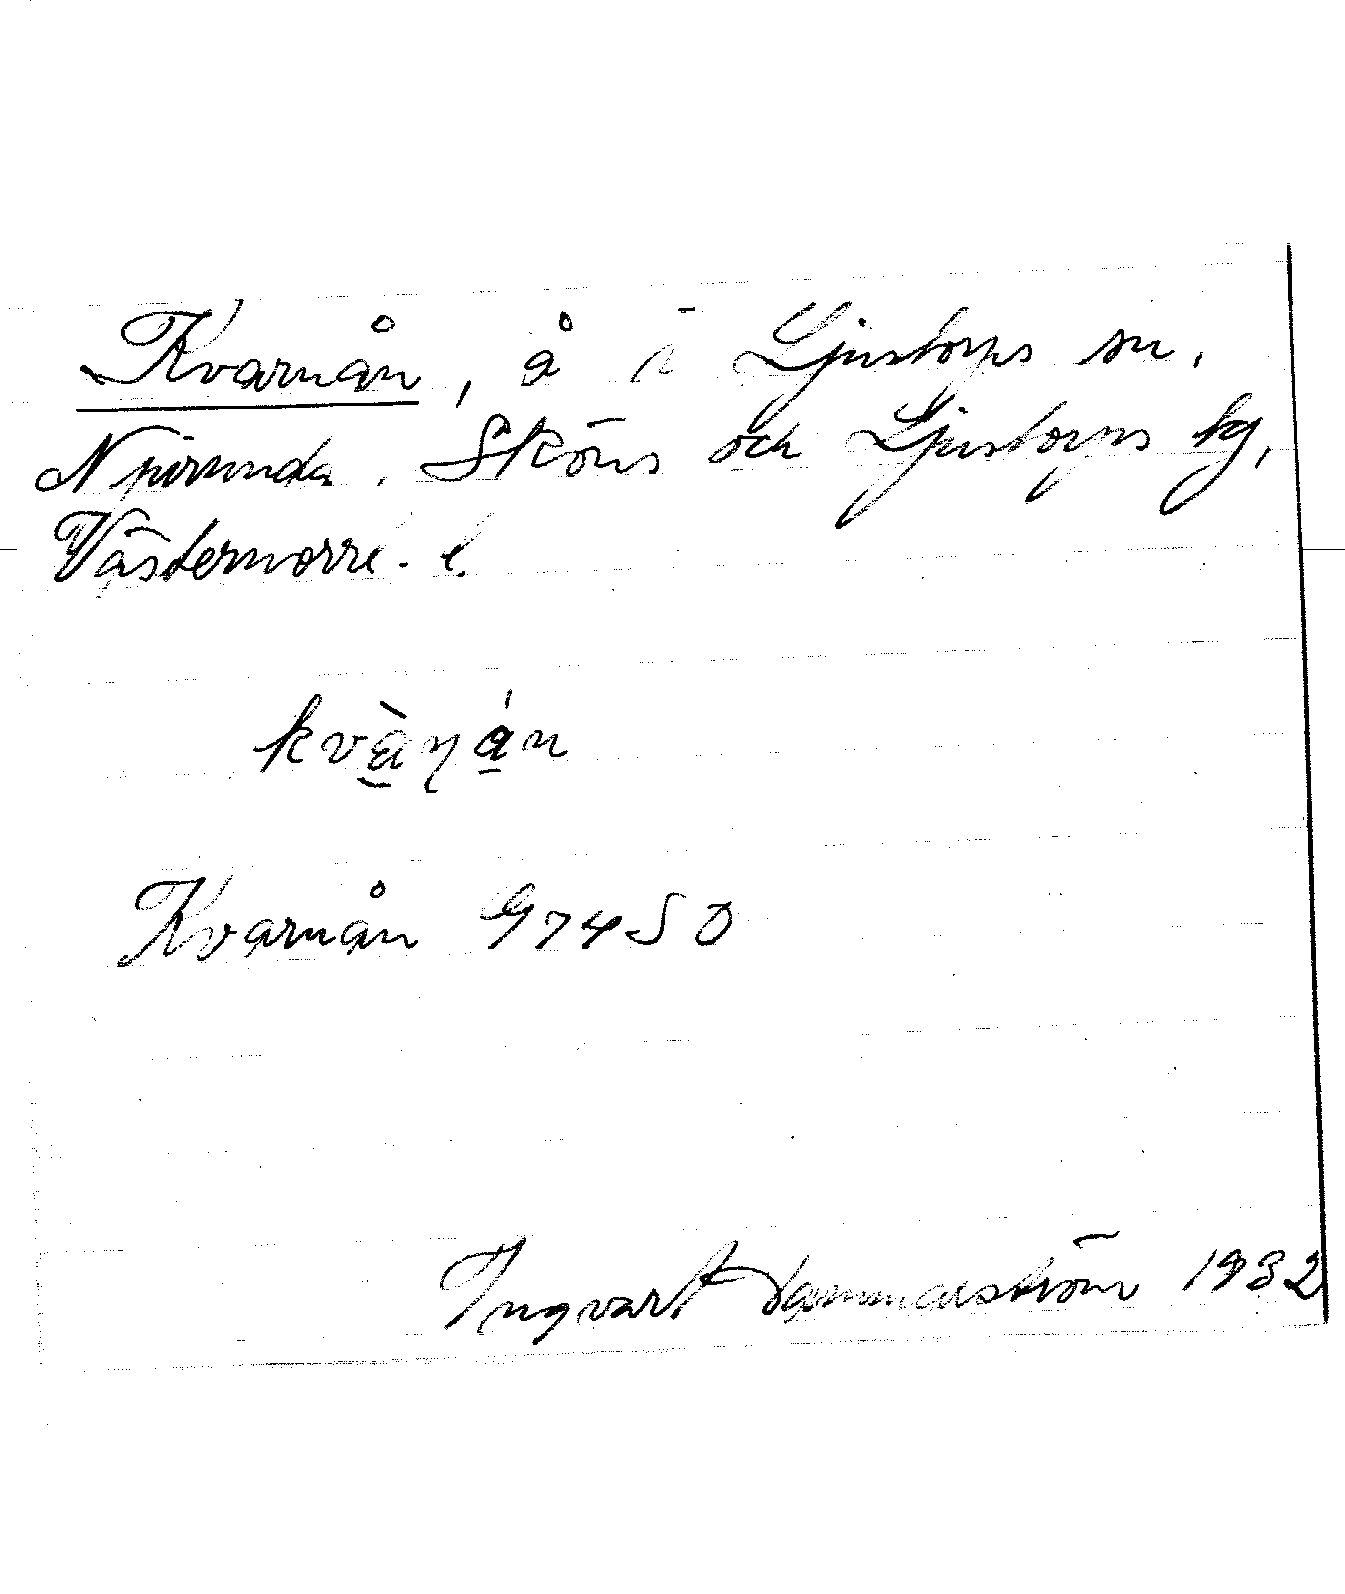 Kvarnån, å i Ljustorps sn,
Njurunda, Sköns och Ljustorps tg,
Västernorrl. l.
Kvarnån G7450
Ingvart Hammarström 1932